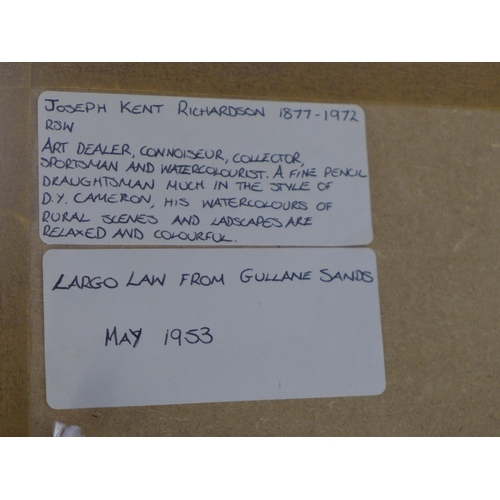 JOSEPH KENT RICHARDSON 1877-1972
RSW
ART DEALER, CONNOISEUR, COLLECTOR,
SPORTSMAN AND WATERCOLOURIST. A FINE PENCIL
DRAUGHTSMAN MUCH IN THE STYLE OF
D.Y. CAMERON, HIS WATERCOLOURS OF
RURAL SCENES AND LADSCAPES ARE
RELAXED AND COLOURFUL.
LARGO LAW FROM GULLANE SANDS
MAY 1953